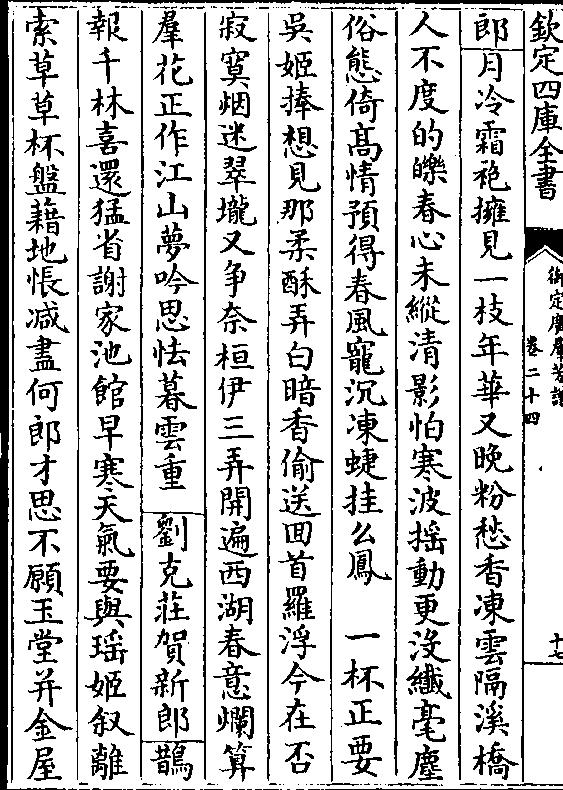 欽定四庫全書
御定廣羣芳譜
卷二十四
十七
郎月冷霜袍擁見一枝年華又晚粉愁香凍雲隔溪橋
人不度的皪春心未縱清影怕寒波搖動更沒纖毫塵
俗態倚髙情預得春風寵沉凍蜨挂么鳳　一杯正要
吳姬捧想見那柔酥弄白暗香偷送回首羅浮今在否
寂寞烟迷翠壠又争奈桓伊三弄開遍西湖春意爛算
羣花正作江山夢吟思怯暮雲重　劉克莊賀新郎鵲
報千林喜還猛省謝家池館早寒天氣要與瑶姬叙離
索草草杯盤藉地悵减盡何郎才思不願玉堂并金屋